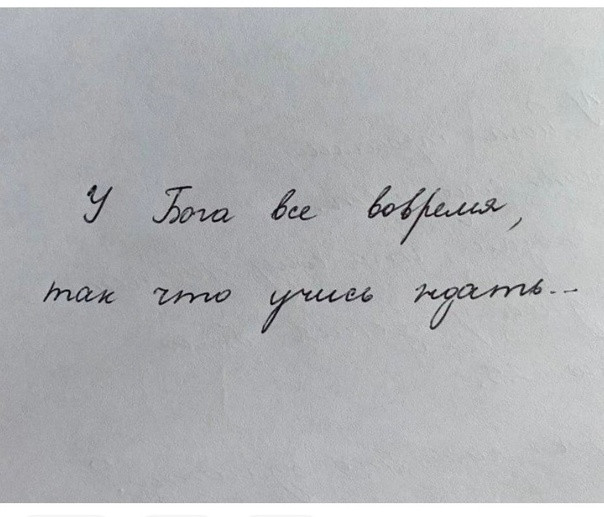 У Бога все вовремя,
так что учись ждать...